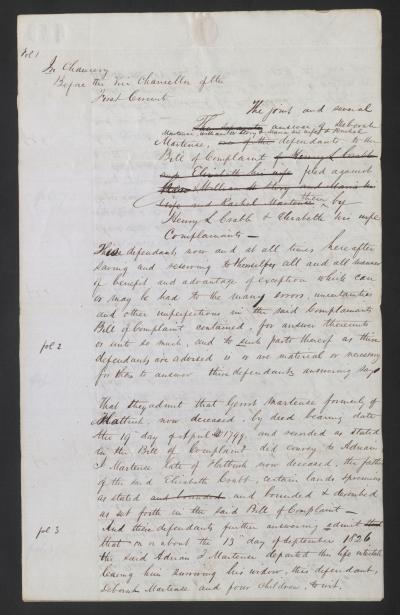 fol 1
In Chancery
Before the Vice Chancellor of the
First Circuit
The joint and several
The separate answer of Deborah
Martense, William H Story & Maria his wife & Rachel
Martense, one of the defendants to the
Bill of Complaint of Henry L Crabb
and Elizabeth his wife filed against
William H Story and Maria his
wife and Rachel Martense them by
Henry L Crabb & Elizabeth his wife
Complainants —
These defendants now and at all times hereafter
saving and reserving to themselves all and all manner
of benefit and advantage of exception which can
or may be had to the many errors, uncertainties
and other imperfections in the said Complainants
Bill of Complaint contained, for answer thereunto
or unto so much, and to such parts thereof as these
fol 2
defendants are advised is or are material or necessary
for them to answer these defendants answering say
That they admit that Gerrit Martense formerly of
Flatbush, now deceased, by deed bearing date
the 19 day of April 1799, and recorded as stated
in the Bill of Complaint did convey to Adrian
I Martense late of Flatbush now deceased, the father
of the said Elizabeth Crabb, certain lands & premises
as stated and bounded and bounded & described
as set forth in the said Bill of Complaint —
fol 3
And these defendants further answering admit that
that on or about the 13th day of September 1826
the said Adrian I Martense departed this life intestate
leaving him surviving his widow, this defendant,
Deborah Martense and four children, to wit.